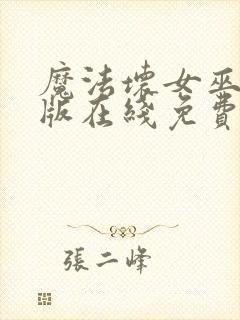 魔法壞女巫
版在綫免費
張二峰